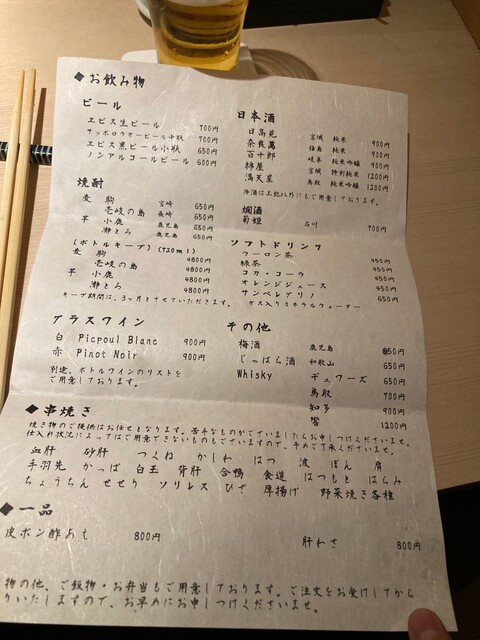 ◆お飲み物
ビール
ヱビス生ビール 700円
サッポロラガービール中瓶 700円
ヱビス黒ビール小瓶 650円
ノンアルコールビール 600円
焼酎
麦 駒 宮崎 650円
壱岐の島 長崎 650円
芋 小鹿 鹿児島 650円
灘とろ 鹿児島 650円
(ボトルキープ)(720ml)
麦 駒 4800円
壱岐の島 4800円
芋 小鹿 4800円
灘とろ 4800円
キープ期間は、3ヶ月とさせていただきます。
グラスワイン
白 Picpoul Blanc 900円
赤 Pinot Noir 900円
別途、ボトルワインのリストを
ご用意しております。
日本酒
日高見 宮城 純米 900円
奈良萬 福島 純米 900円
百十郎 岐阜 純米吟醸 900円
綿屋 宮城 特別純米 1200円
満天星 鳥取 純米吟醸 1200円
冷酒は上記以外にもご用意しております。
燗酒
菊姫 石川 700円
ソフトドリンク
ウーロン茶 450円
緑茶 450円
コカ・コーラ 450円
オレンジジュース 450円
サンペレグリノ 650円
ガス入りミネラルウォーター
その他
梅酒 鹿児島 650円
じゃばら酒 和歌山 650円
Whisky デュワーズ 650円
鳥取 700円
知多 900円
響 1200円
◆串焼き
焼き物のご提供はお任せとなります。苦手なものがございましたらお申しつけくださいませ。
仕入れ状況によってはご用意できないものもございますので、予めご了承くださいませ。
血肝 砂肝 つくね かしわ はつ 波 ぼん 肩
手羽先 かっぱ 白玉 背肝 合鴨 食道 はつもと はらみ
ちょうちん せせり ソリレス ひざ 厚揚げ 野菜焼き各種
◆一品
皮ポン酢あえ 800円
肝わさ 800円
物の他、ご飯物・お弁当もご用意しております。ご注文をお受けしてから
りいたしますので、お早めにお申しつけくださいませ。